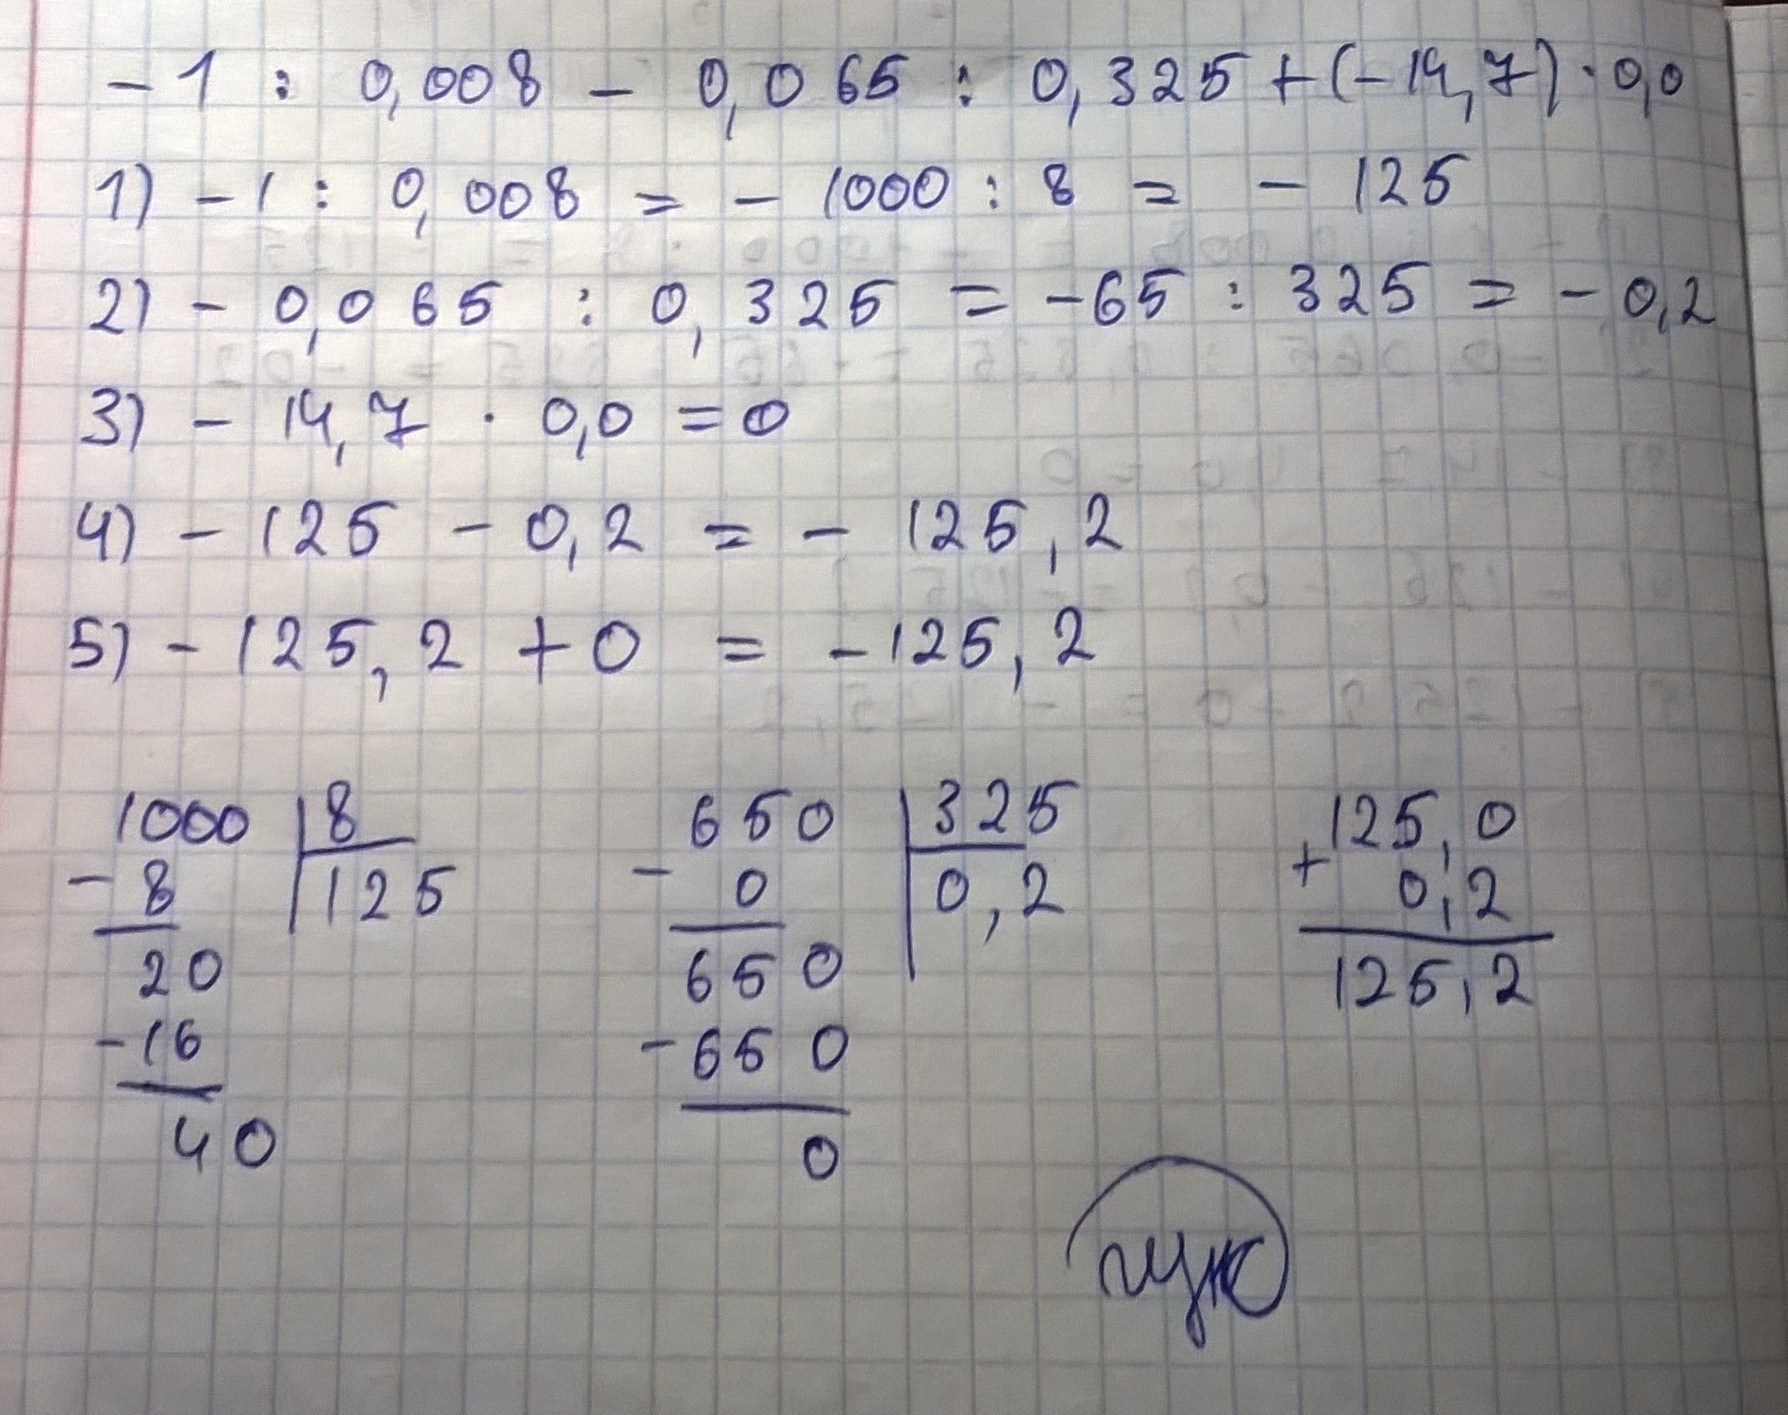 -1 : 0,008 - 0,065 : 0,325 + (-14,7) · 0,0
1) -1 : 0,008 = - 1000 : 8 = - 125
2) - 0,065 : 0,325 = -65 : 325 = - 0,2
3) - 14,7 · 0,0 = 0
4) - 125 - 0,2 = - 125,2
5) - 125,2 + 0 = - 125,2
1000 8
- 8 125
20
-16
40
650 325
- 0 0,2
650
-650
0
125,0
+ 0,2
125,2